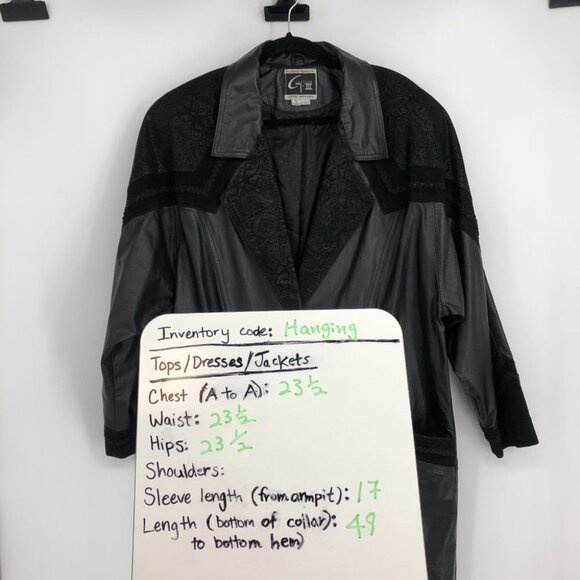 G III
Inventory code: Hanging
Tops/Dresses/Jackets
Chest (A to A): 23 1/2
Waist: 23 1/2
Hips: 23 1/2
Shoulders:
Sleeve length (from armpit): 17
Length (bottom of collar): 49
to bottom hem)